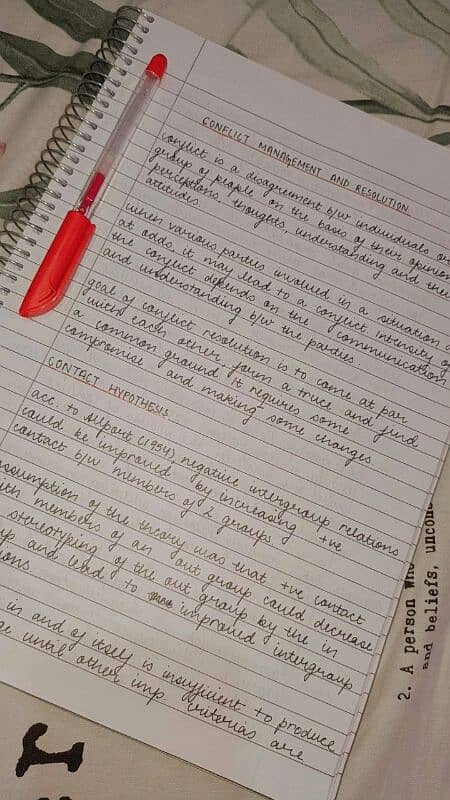 CONFLICT MANAGEMENT AND RESOLUTION
conflict is a disagreement b/w individuals or
group of people on the basis of their opinion
perceptions, thoughts, understanding and the
attitudes.
when various parties involved in a situation
at odds it may lead to a conflict. intensity of
the conflict depends on the communication
and understanding b/w the parties.
goal of conflict resolution is to come at par
with each other, form a truce and find
a common ground. It requires some
compromise and making some changes
CONTACT HYPOTHESIS
acc. to Allport (1954) negative intergroup relations
could be improved by increasing +ve
contact b/w members of 2 groups
assumption of the theory was that +ve contact
with members of an out group could decrease
stereotyping of the out group by the in
up and lead to improved intergroup
ions
in and of itself is insufficient to produce
ge until other imp. criterias are
2. A person who
and beliefs, uncon
r